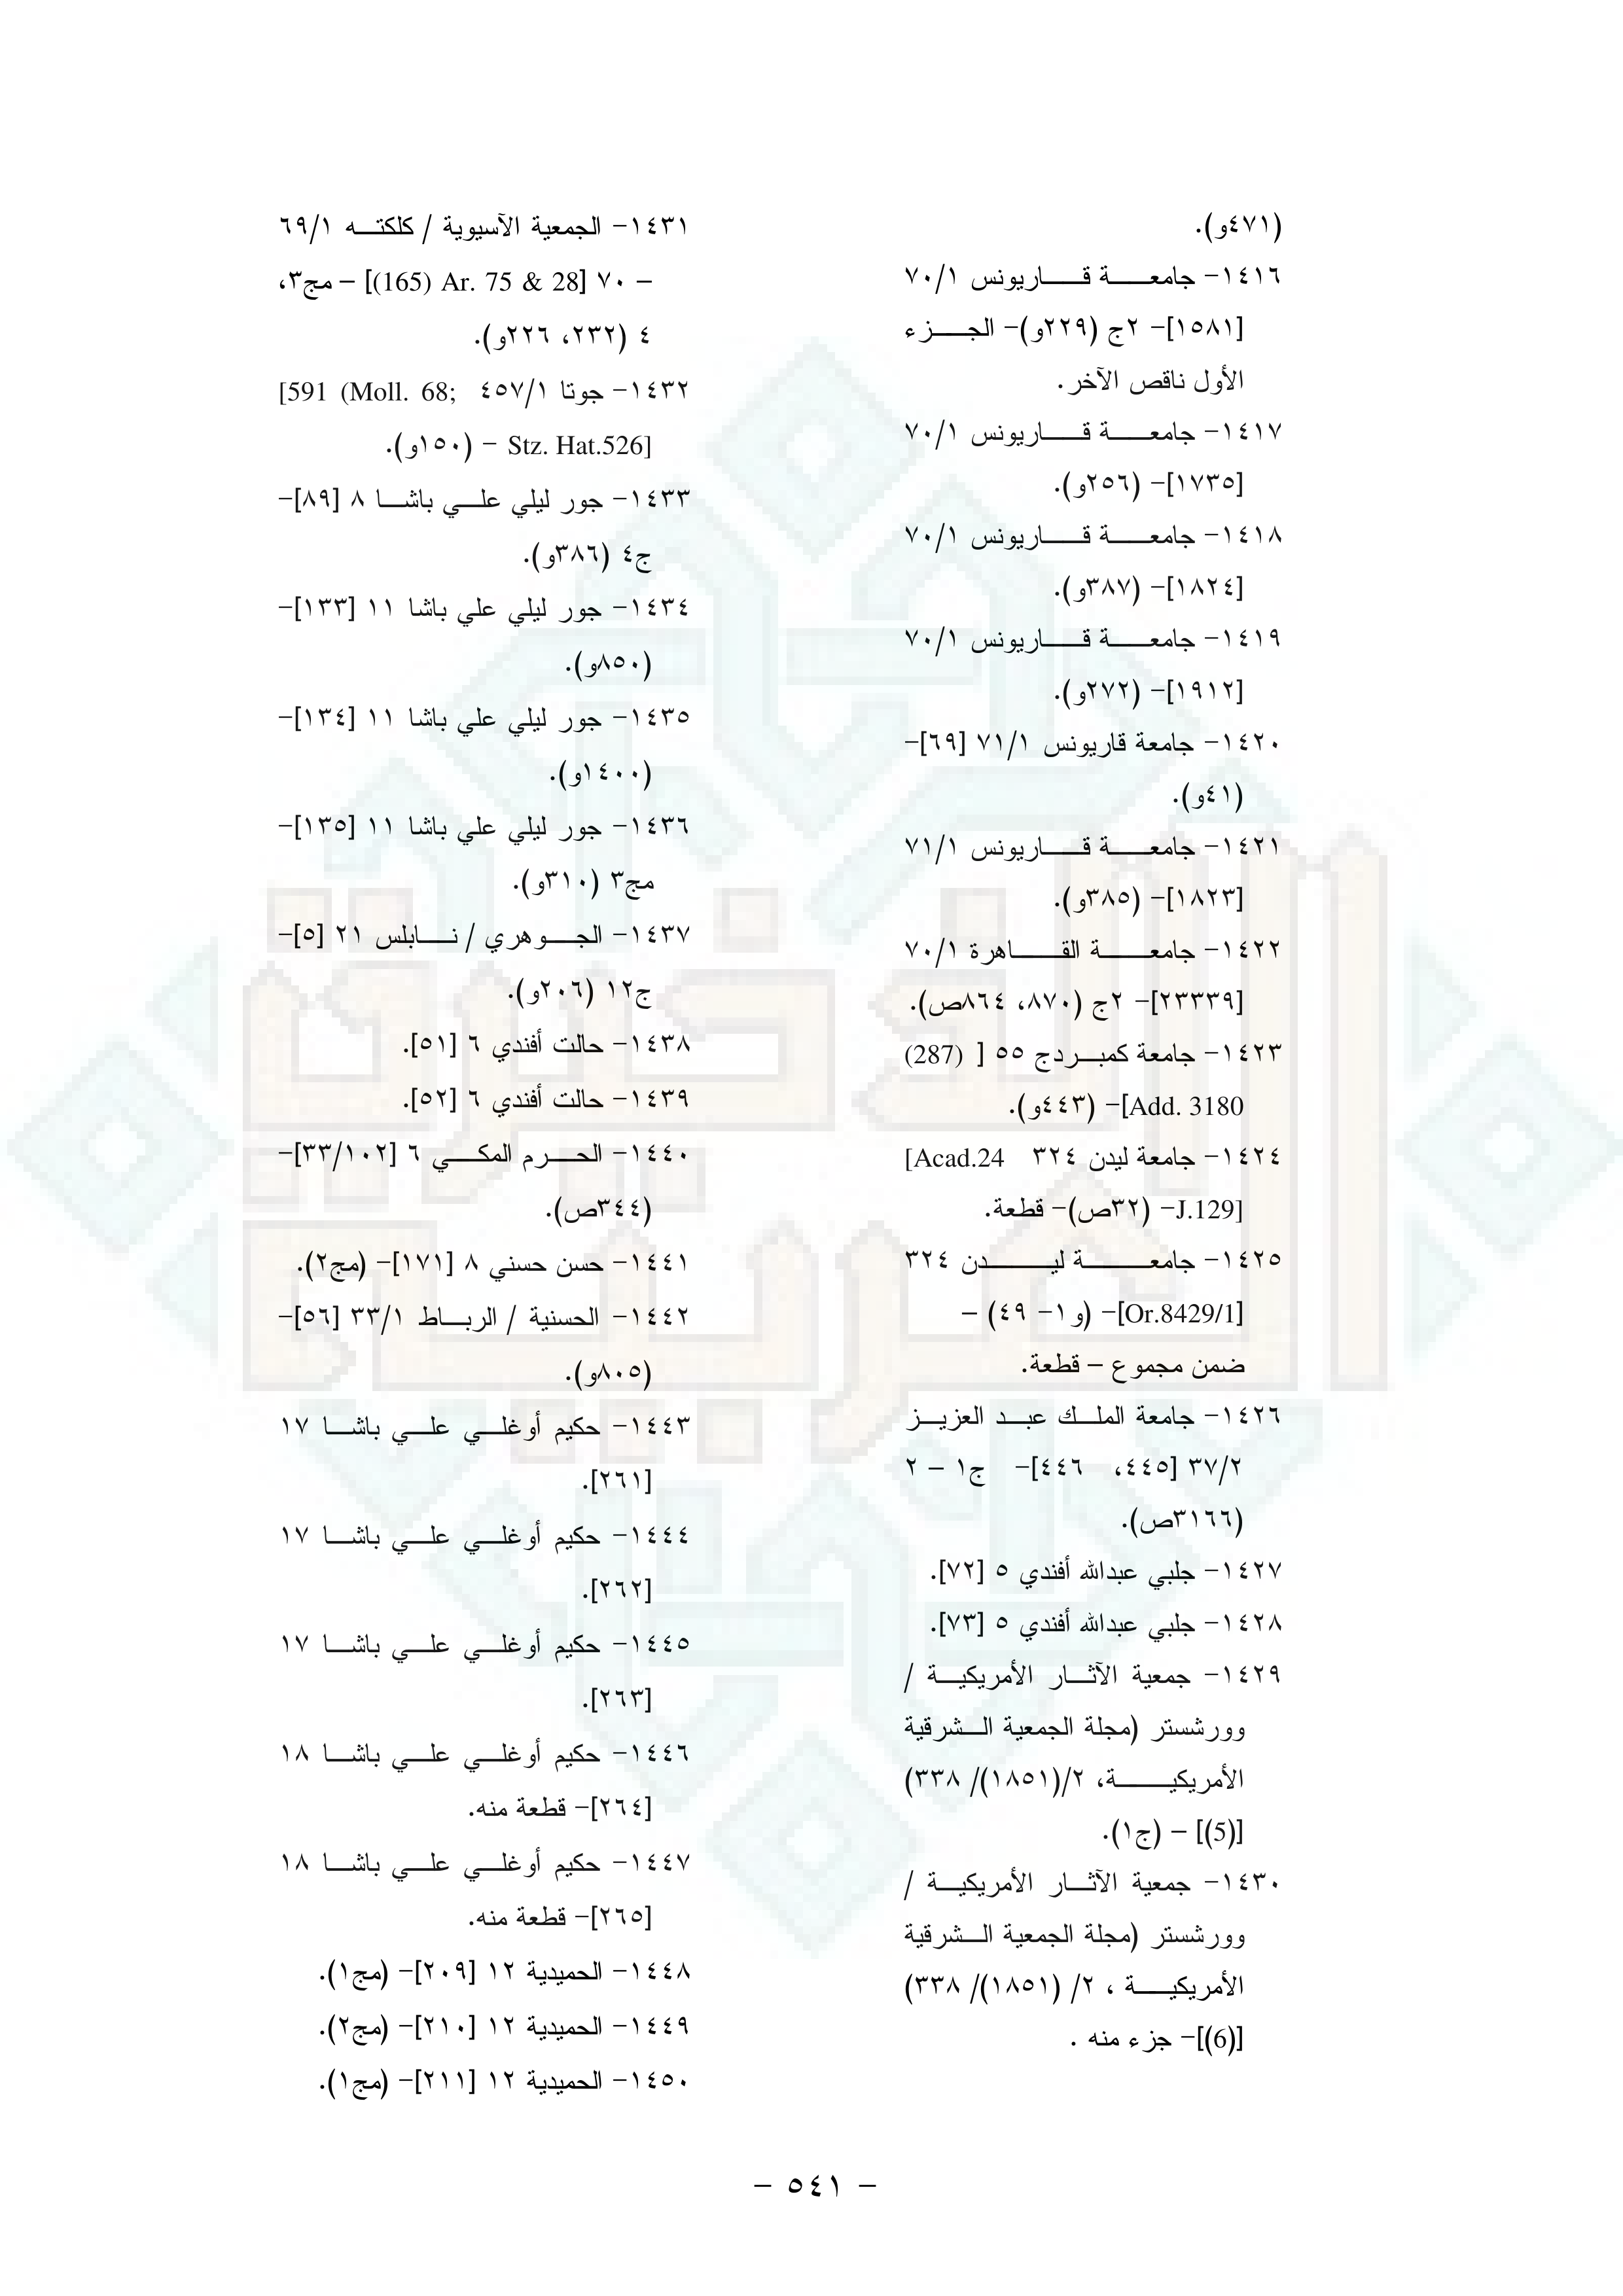 (٤٧١و).
١٤١٦- جامعة قاريونس ٧٠/١
[١٥٨١]- ٢ج (٢٢٩و)- الجزء
الأول ناقص الآخر.
١٤١٧- جامعة قاريونس ٧٠/١
[١٧٣٥]- (٢٥٦و).
١٤١٨- جامعة قاريونس ٧٠/١
[١٨٢٤]- (٣٨٧و).
١٤١٩- جامعة قاريونس ٧٠/١
[١٩١٢]- (٢٧٢و).
١٤٢٠- جامعة قاريونس ٧١/١ [٦٩]-
(٤١و).
١٤٢١- جامعة قاريونس ٧١/١
[١٨٢٣]- (٣٨٥و).
١٤٢٢- جامعة القاهرة ٧٠/١
[٢٣٣٣٩]- ٢ج (٨٧٠، ٨٦٤ص).
١٤٢٣- جامعة كمبردج ٥٥ [ (287)
Add. 3180]- (٤٤٣و).
١٤٢٤- جامعة ليدن ٣٢٤ [Acad.24
J.129]- (٣٢ص)- قطعة.
١٤٢٥- جامعة ليدن ٣٢٤
[Or.8429/1]- (و١- ٤٩) –
ضمن مجموع – قطعة.
١٤٢٦- جامعة الملك عبد العزيز
٣٧/٢ [٤٤٥، ٤٤٦]- ج١ – ٢
(٣١٦٦ص).
١٤٢٧- جلبي عبدالله أفندي ٥ [٧٢].
١٤٢٨- جلبي عبدالله أفندي ٥ [٧٣].
١٤٢٩- جمعية الآثار الأمريكية /
وورشستر (مجلة الجمعية الشرقية
الأمريكية، ٢/(١٨٥١)/ ٣٣٨)
[(5)] – (ج١).
١٤٣٠- جمعية الآثار الأمريكية /
وورشستر (مجلة الجمعية الشرقية
الأمريكية ، ٢/ (١٨٥١)/ ٣٣٨)
[(6)]- جزء منه .
١٤٣١- الجمعية الآسيوية / كلكته ٦٩/١
– ٧٠ [(165) Ar. 75 & 28] – مج٣،
٤ (٢٣٢، ٢٢٦و).
١٤٣٢- جوتا ٤٥٧/١ [591 (Moll. 68;
Stz. Hat.526] – (١٥٠و).
١٤٣٣- جور ليلي علي باشا ٨ [٨٩]-
ج٤ (٣٨٦و).
١٤٣٤- جور ليلي علي باشا ١١ [١٣٣]-
(٨٥٠و).
١٤٣٥- جور ليلي علي باشا ١١ [١٣٤]-
(١٤٠٠و).
١٤٣٦- جور ليلي علي باشا ١١ [١٣٥]-
مج٣ (٣١٠و).
١٤٣٧- الجوهري / نابلس ٢١ [٥]-
ج١٢ (٢٠٦و).
١٤٣٨- حالت أفندي ٦ [٥١].
١٤٣٩- حالت أفندي ٦ [٥٢].
١٤٤٠- الحرم المكي ٦ [٣٣/١٠٢]-
(٣٤٤ص).
١٤٤١- حسن حسني ٨ [١٧١]- (مج٢).
١٤٤٢- الحسنية / الرباط ٣٣/١ [٥٦]-
(٨٠٥و).
١٤٤٣- حكيم أوغلي علي باشا ١٧
[٢٦١].
١٤٤٤- حكيم أوغلي علي باشا ١٧
[٢٦٢].
١٤٤٥- حكيم أوغلي علي باشا ١٧
[٢٦٣].
١٤٤٦- حكيم أوغلي علي باشا ١٨
[٢٦٤]- قطعة منه.
١٤٤٧- حكيم أوغلي علي باشا ١٨
[٢٦٥]- قطعة منه.
١٤٤٨- الحميدية ١٢ [٢٠٩]- (مج١).
١٤٤٩- الحميدية ١٢ [٢١٠]- (مج٢).
١٤٥٠- الحميدية ١٢ [٢١١]- (مج١).
– ٥٤١ –